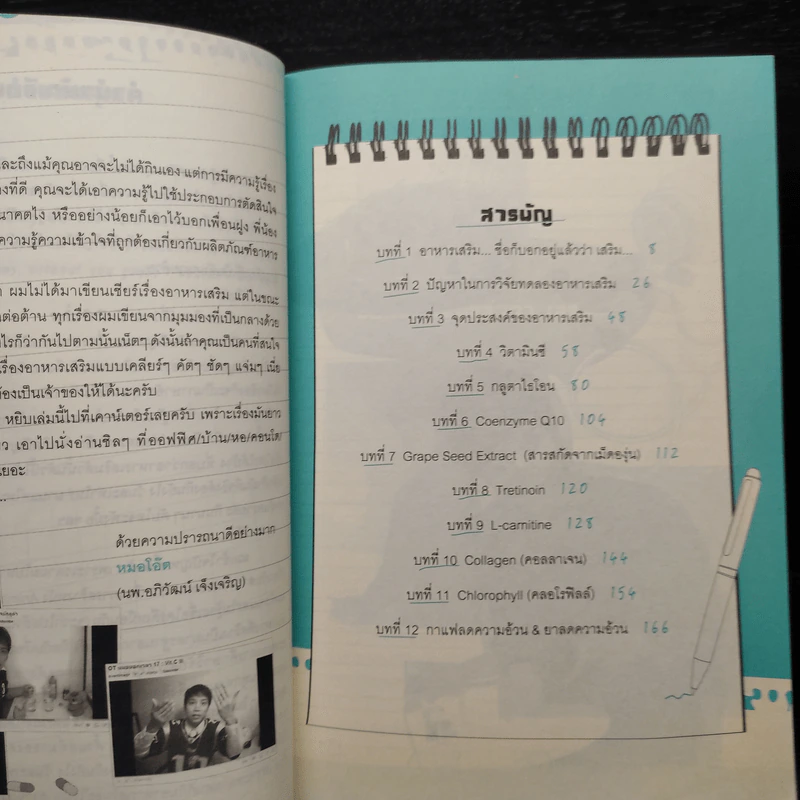 ละถึงแม้คุณอาจจะไม่ได้กินเอง แต่การมีความรู้เรื่อง
งที่ดี คุณจะได้เอาความรู้ไปใช้ประกอบการตัดสินใจ
นาคตไง หรืออย่างน้อยก็เอาไว้บอกเพื่อนฝูง พี่น้อง
ความรู้ความเข้าใจที่ถูกต้องเกี่ยวกับผลิตภัณฑ์อาหาร
ผมไม่ได้มาเขียนเชียร์เรื่องอาหารเสริม แต่ในขณะ
ต่อต้าน ทุกเรื่องผมเขียนจากมุมมองที่เป็นกลางด้วย
ไรก็ว่ากันไปตามนั้นเน็ตๆ ดังนั้นถ้าคุณเป็นคนที่สนใจ
เรื่องอาหารเสริมแบบเคลียร์ๆ คัตๆ ชัดๆ แจ่มๆ เนี่ย
ต้องเป็นเจ้าของให้ได้นะครับ
หยิบเล่มนี้ไปที่เคาน์เตอร์เลยครับ เพราะเรื่องมันยาว
ว เอาไปนั่งอ่านชิลๆ ที่ออฟฟิศ/บ้าน/หอ/คอนโด/
เยอะ
...
ด้วยความปรารถนาดีอย่างมาก
หมอโอ๊ต
(นพ.อภิวัฒน์ เจ็งเจริญ)
สารบัญ
บทที่ 1 อาหารเสริม... ชื่อก็บอกอยู่แล้วว่า เสริม... 8
บทที่ 2 ปัญหาในการวิจัยทดลองอาหารเสริม 26
บทที่ 3 จุดประสงค์ของอาหารเสริม 48
บทที่ 4 วิตามินซี 58
บทที่ 5 กลูตาไธโอน 80
บทที่ 6 Coenzyme Q10 104
บทที่ 7 Grape Seed Extract (สารสกัดจากเม็ดองุ่น) 112
บทที่ 8 Tretinoin 120
บทที่ 9 L-carnitine 128
บทที่ 10 Collagen (คอลลาเจน) 144
บทที่ 11 Chlorophyll (คลอโรฟิลล์) 154
บทที่ 12 กาแฟลดความอ้วน & ยาลดความอ้วน 166